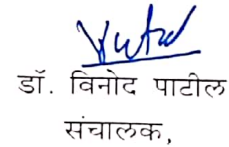 डॉ. विनोद पाटील
संचालक,